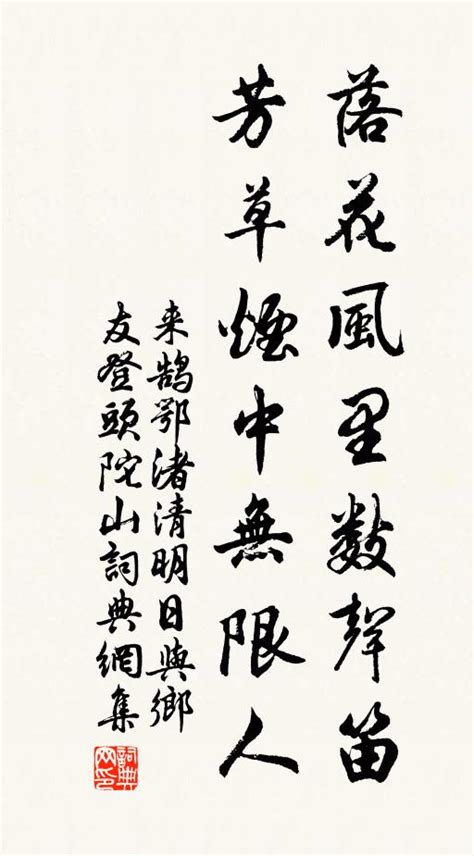 落花風里数聲笛
芳草煙中無限人
来鹄鄂渚清明日與鄉
友登頭陀山詞典網集
詞典网印